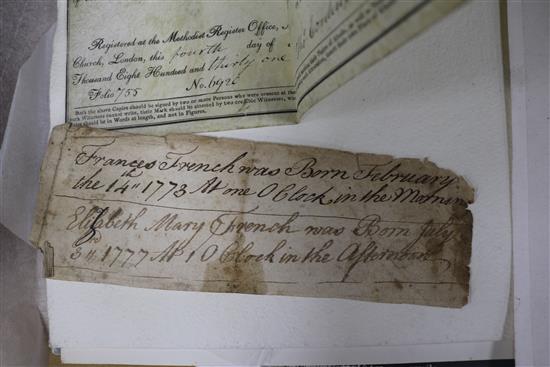 Registered at the Methodist Register Office,
Church, London, this fourth day of
Thousand Eight Hundred and thirty one
Folio 755 No.
Both the above Copies should be signed by two or more Persons who were present at the
Witnesses cannot write, their Mark should be attested by two
should be in Words at length, and not in Figures.
Frances French was Born February
the 14th 1773 At one O Clock in the Mornin
Elizabeth Mary French was Born July
3rd 1777 At 1 O Clock in the Afternoon